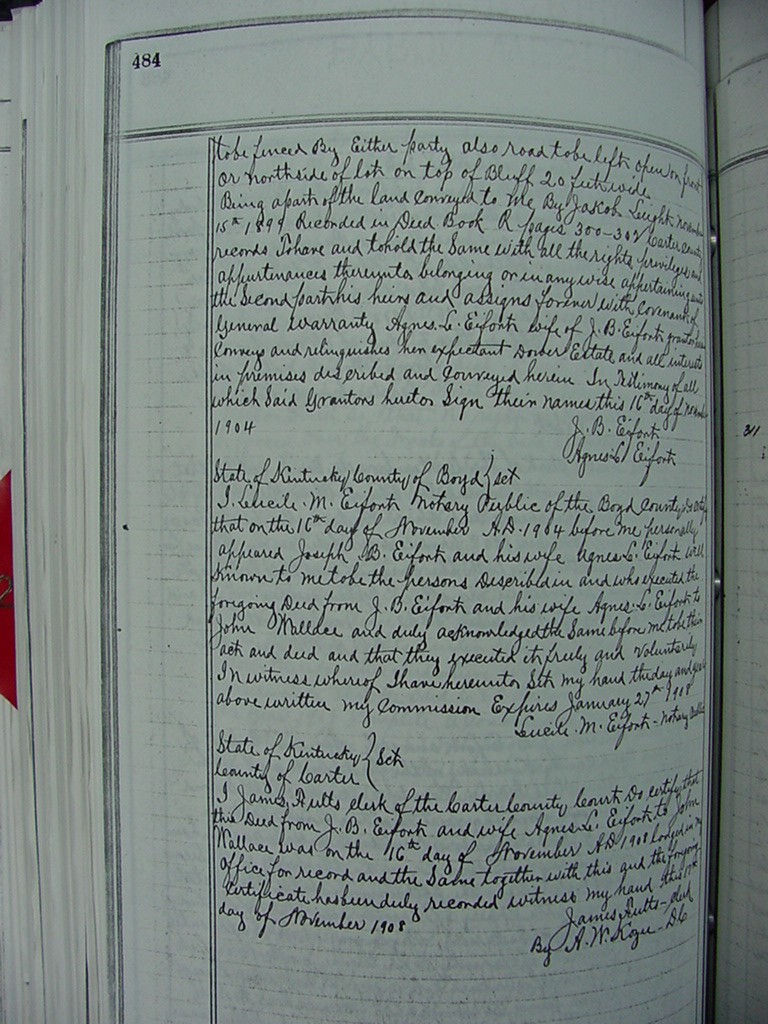 484
to be fenced By Either party also road to be left open on front
Or North side of lot on top of Bluff 20 feet wide
Being a part of the land conveyed to me By Jacob Leight November
15th 1899 Recorded in Deed Book R pages 300-302 Carter County
records To have and to hold the Same with all the rights privileges and
appurtinances thereunto belonging or in any wise appertaining unto
the Second part his heirs and assigns forever with Covenant of
General Warranty Agnes. L. Eifort wife of J. B. Eifort grantor
Conveys and relinquishes her expectant Dower Estate and all interest
in premises described and conveyed herein In Testimony of all
which Said Grantors hereto Sign their names this 16th day of November
1904
J. B. Eifort
Agnes L Eifort
State of Kentucky County of Boyd } sct
I. Lucile. M. Eifort Notary Public of the Boyd County Do certify
that on the 16th day of November A.D. 1904 before me personally
appeared Joseph B. Eifort and his wife Agnes L. Eifort well
Known to me to be the persons Described in and who executed the
foregoing Deed from J. B. Eifort and his wife Agnes L. Eifort to
John Wallace and duly acknowledged the Same before me to be their
act and deed and that they executed it freely and voluntarily
In witness whereof I have hereunto Set my hand the day and year
above written My Commission Expires January 27th 1908
Lucile. M. Eifort - Notary Public
State of Kentucky } Sct
County of Carter
I James Hutts clerk of the Carter County Court Do certify that
this Deed from J. B. Eifort and wife Agnes L. Eifort to John
Wallace was on the 16th day of November A.D 1908 lodged in my
Office for record and the Same together with this and the foregoing
Certificate has been duly recorded witness my hand this 17th
day of November 1908
James Hutts - clerk
By A. W. Kozee - D.C
311